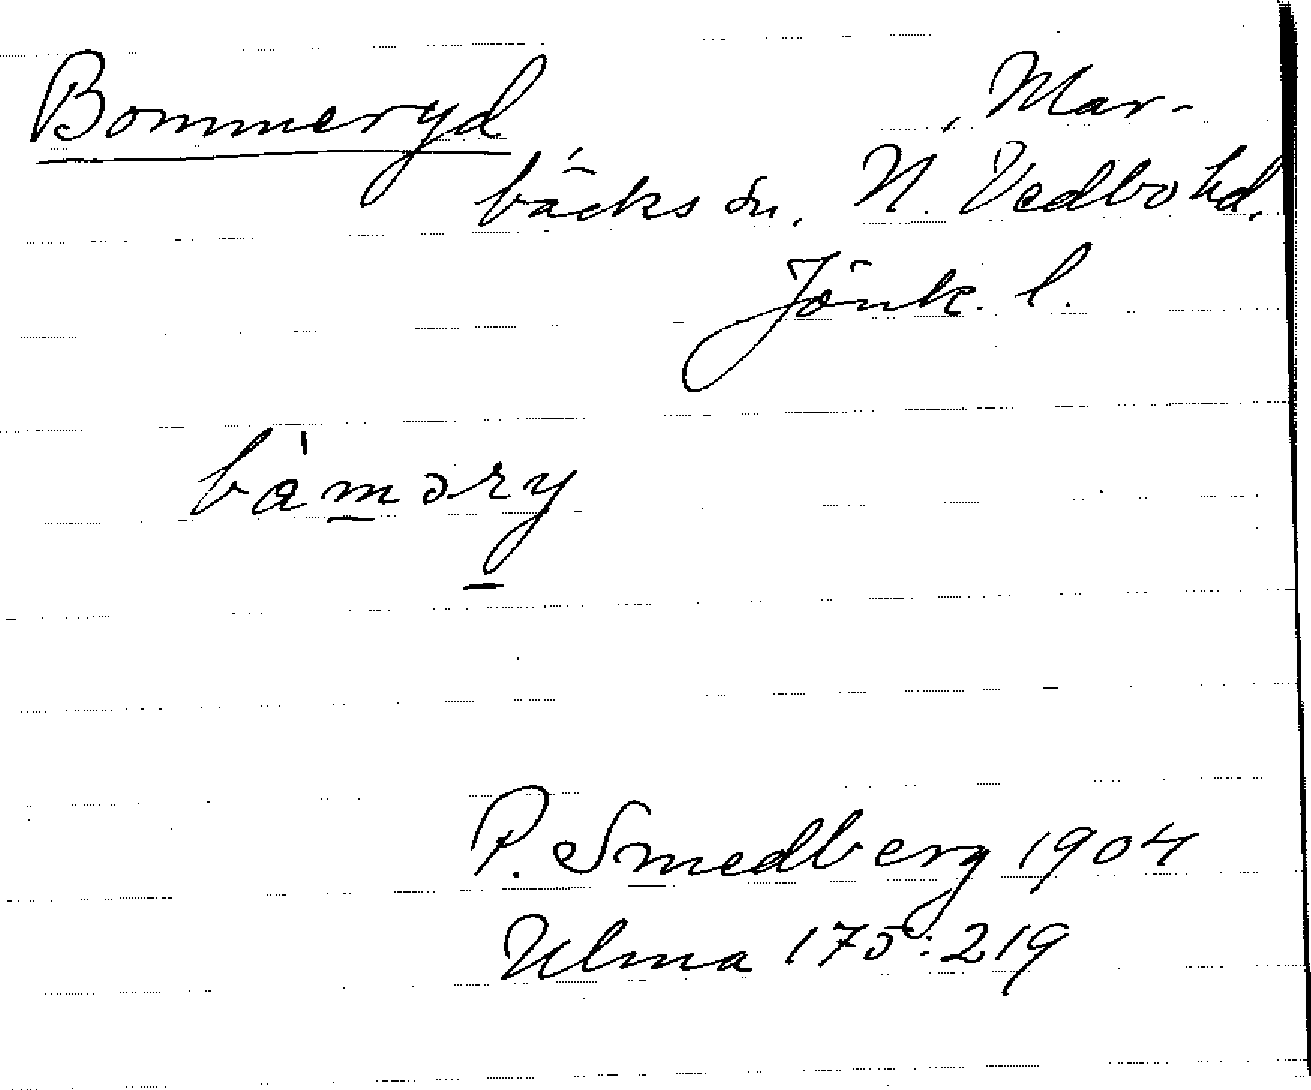 Bommeryd, Mar-
bäcks sn. N. Vedbo hd.
Jönk. l.
bàməry
P. Smedberg 1904
Ulma 175:219